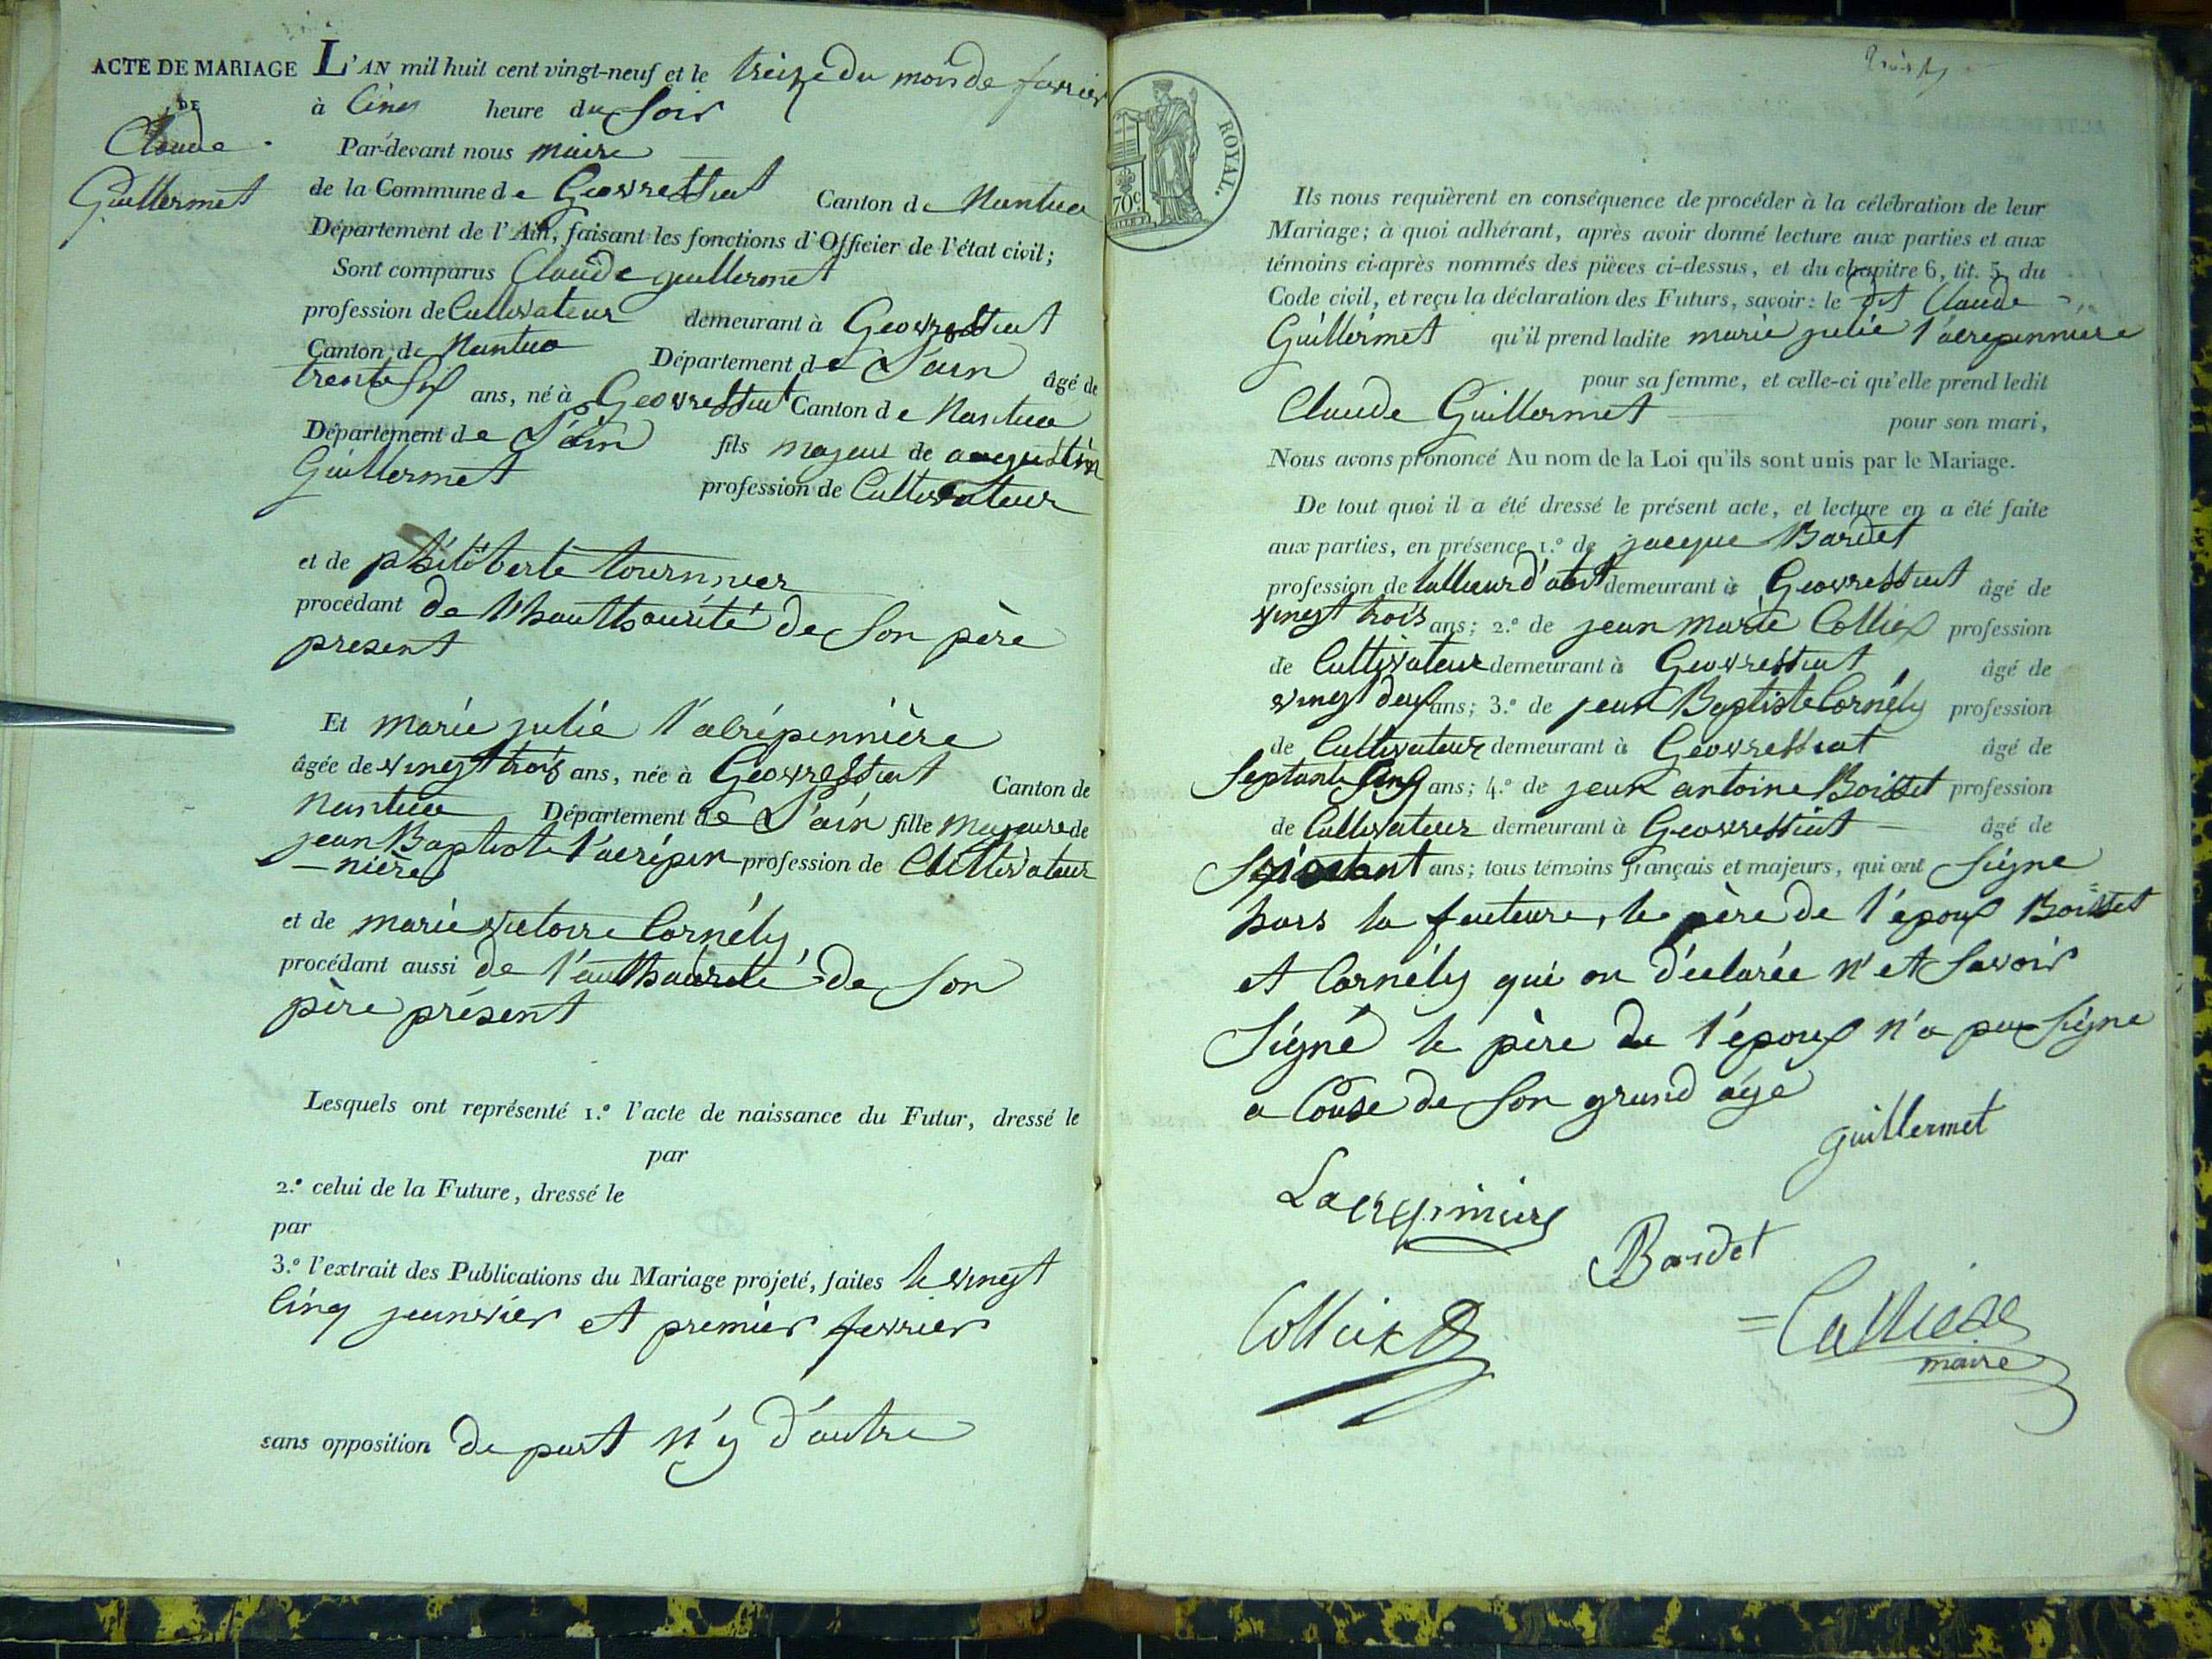 ACTE DE MARIAGE
DE
Claude
Guillermet
L'AN mil huit cent vingt-neuf et le treize du mois de fevrier
à Cinq heure du Soir
Par-devant nous maire
de la Commune de Geovressiat Canton de Nantua
Département de l'Ain, faisant les fonctions d'Officier de l'état civil;
Sont comparus Claude guillermet
profession de Cultivateur demeurant à Geovressiat
Canton de Nantua Département de L'ain âgé de
trente Six ans, né à Geovressiat Canton de Nantua
Département de L'ain fils majeur de augustin
Guillermet profession de Cultivateur
et de philiberte tournnier
procédant de l'hauthourité de Son père
present
Et marie julie l'acrépinnière
âgée de vingt trois ans, née à Geovressiat Canton de
Nantua Département de L'ain fille majeure de
jean Baptiste l'acrépin
-nière profession de Cultivateur
et de marie victoire Cornély
procédant aussi de l'authourité de Son
père présent
Lesquels ont représenté 1.º l'acte de naissance du Futur, dressé le
par
2.º celui de la Future, dressé le
par
3.º l'extrait des Publications du Mariage projeté, faites le vingt
Cinq jeunvier et premier fevrier
sans opposition de part n'y d'autre
ROYAL.
70c
Ils nous requièrent en conséquence de procéder à la célébration de leur
Mariage; à quoi adhérant, après avoir donné lecture aux parties et aux
témoins ci-après nommés des pièces ci-dessus, et du chapitre 6, tit. 5 du
Code civil, et reçu la déclaration des Futurs, savoir: le dit Claude
Guillermet qu'il prend ladite marie julie l'acrepinniere
pour sa femme, et celle-ci qu'elle prend ledit
Claude Guillermet pour son mari,
Nous avons prononcé Au nom de la Loi qu'ils sont unis par le Mariage.
De tout quoi il a été dressé le présent acte, et lecture en a été faite
aux parties, en présence 1.º de jacque Bardet
profession de tallieur d'abit demeurant à Geovressiat âgé de
vingt trois ans; 2.º de jean marie Colliex profession
de Cultivateur demeurant à Geovressiat âgé de
vingt deux ans; 3.º de jean Baptiste Cornély profession
de Cultivateur demeurant à Geovressiat âgé de
Septante Cinq ans; 4.º de jean antoine Boisset profession
de Cultivateur demeurant à Geovressiat âgé de
ans; tous témoins français et majeurs, qui ont Signe
hors la feuteure, le père de l'epoux Boisset
et Cornély qui on déclarée n'et Savoir
Signé le père de l'époux n'a pas Signe
a Couse de Son grand age
guillermet
Lacrepiniere
Bardet
Colliex
= Calliede
maire